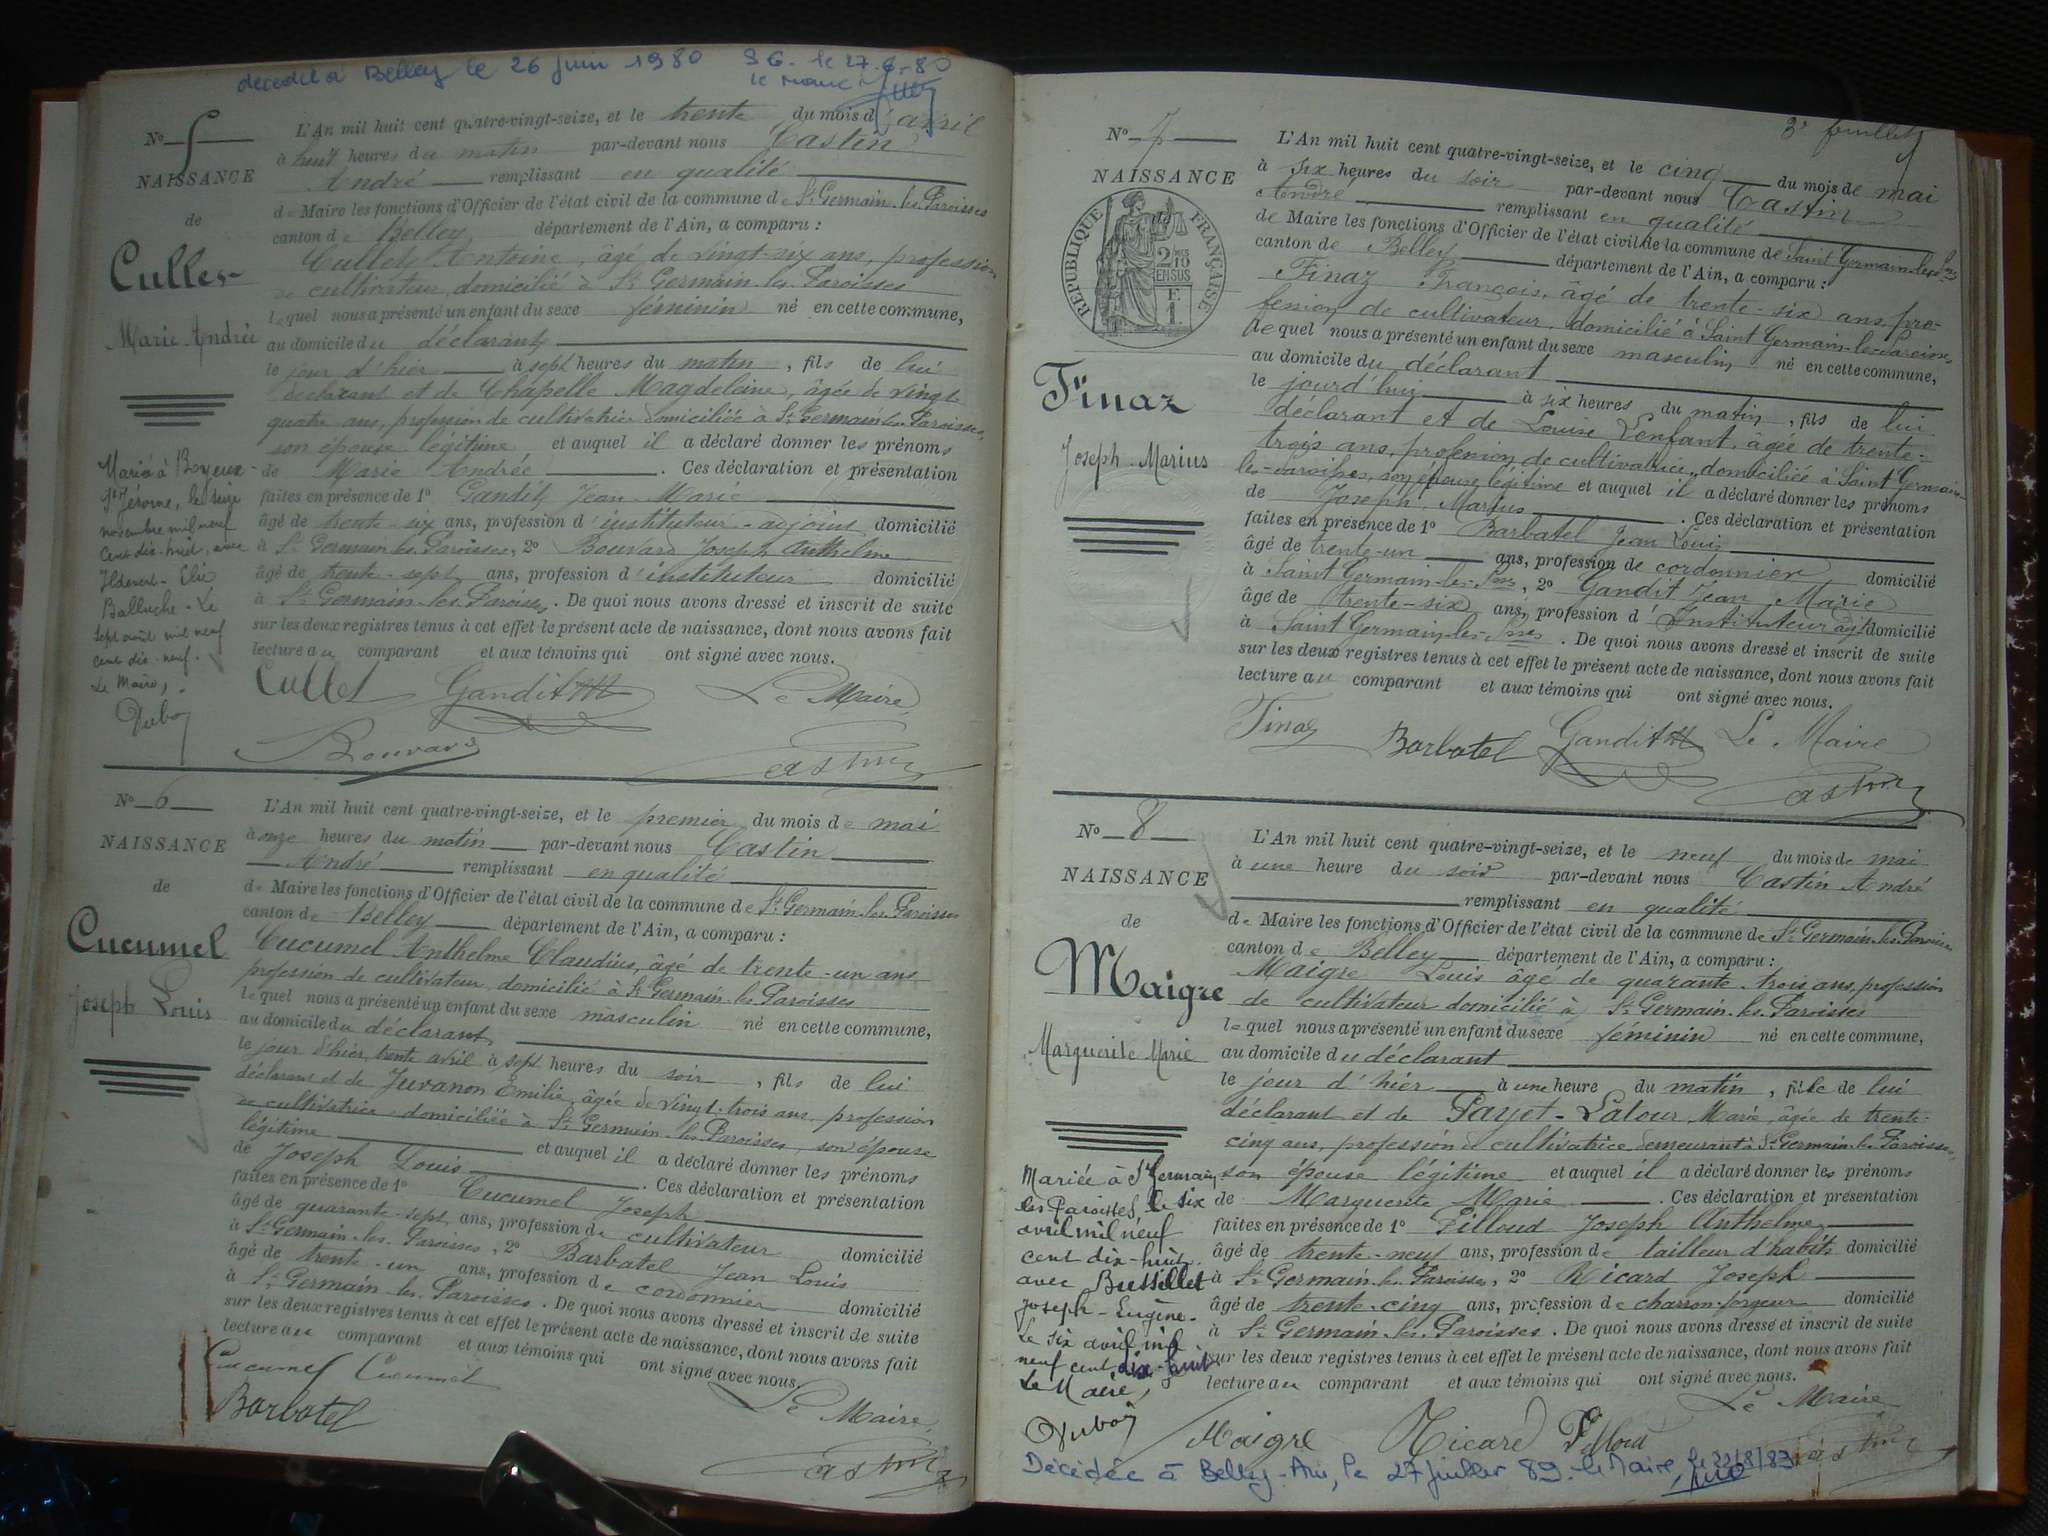 décédée à Belley le 26 juin 1980 SG. le 27.6.80
le Maire
N° 5
NAISSANCE
de
Cullet
Marie Andrée
Mariée à Boyeux-
St Jérome, le seize
novembre mil neuf
cent dix-huit, avec
Balluche. Le
Sept août mil neuf
cent dix-neuf.
Le Maire,
Duboy
L'An mil huit cent quatre-vingt-seize, et le trente du mois d'avril
à huit heures du matin par-devant nous Castin
André remplissant en qualité
de Maire les fonctions d'Officier de l'état civil de la commune de St Germain-les-Paroisses
canton de Belley département de l'Ain, a comparu :
Cullet Antoine, âgé de vingt-six ans, profession
de cultivateur, domicilié à St Germain-les-Paroisses
lequel nous a présenté un enfant du sexe féminin né en cette commune,
au domicile du déclarant
le jour d'hier à sept heures du matin, fils de lui
déclarant et de Chapelle Magdeleine, âgée de vingt-
quatre ans, profession de cultivatrice domiciliée à St Germain-les-Paroisses,
son épouse légitime et auquel il a déclaré donner les prénoms
de Marie Andrée. Ces déclaration et présentation
faites en présence de 1° Gandit, Jean-Marie
âgé de trente-six ans, profession d'instituteur-adjoint domicilié
à St Germain-les-Paroisses, 2° Bouvard Joseph Anthelme
âgé de trente-sept ans, profession d'instituteur domicilié
à St Germain-les-Paroisses. De quoi nous avons dressé et inscrit de suite
sur les deux registres tenus à cet effet le présent acte de naissance, dont nous avons fait
lecture au comparant et aux témoins qui ont signé avec nous.
Cullet Gandit JM Le Maire,
Bouvard Castin
N° 6
NAISSANCE
de
Cucumel
Joseph Louis
L'An mil huit cent quatre-vingt-seize, et le premier du mois de mai
à onze heures du matin par-devant nous Castin
André remplissant en qualité
de Maire les fonctions d'Officier de l'état civil de la commune de St Germain-les-Paroisses
canton de Belley département de l'Ain, a comparu :
Cucumel Anthelme Claudius, âgé de trente-un ans
profession de cultivateur, domicilié à St Germain-les-Paroisses
lequel nous a présenté un enfant du sexe masculin né en cette commune,
au domicile du déclarant
le jour d'hier, trente avril à sept heures du soir, fils de lui
déclarant et de Juvanon Emilie, âgée de vingt-trois ans, profession
de cultivatrice, domiciliée à St Germain-les-Paroisses, son épouse
légitime et auquel il a déclaré donner les prénoms
de Joseph Louis. Ces déclaration et présentation
faites en présence de 1° Cucumel Joseph
âgé de quarante-sept ans, profession de cultivateur domicilié
à St Germain-les-Paroisses, 2° Barbatel Jean Louis
âgé de trente-un ans, profession de cordonnier domicilié
à St Germain-les-Paroisses. De quoi nous avons dressé et inscrit de suite
sur les deux registres tenus à cet effet le présent acte de naissance, dont nous avons fait
lecture au comparant et aux témoins qui ont signé avec nous.
Cucumel Cucumel
Barbatel Le Maire,
Castin
3e feuillet
N° 7
NAISSANCE
RÉPUBLIQUE FRANÇAISE
2/10 EN SUS
F.
1.
Finaz
Joseph-Marius
L'An mil huit cent quatre-vingt-seize, et le cinq du mois de mai
à six heures du soir par-devant nous Castin
André remplissant en qualité
de Maire les fonctions d'Officier de l'état civil de la commune de Saint Germain-les-Pses
canton de Belley département de l'Ain, a comparu :
Finaz François, âgé de trente-six ans, pro-
fession de cultivateur, domicilié à Saint Germain-les-Paroisses
lequel nous a présenté un enfant du sexe masculin né en cette commune,
au domicile du déclarant
le jourd'hui à six heures du matin, fils de lui
déclarant et de Louise Lenfant, âgée de trente-
trois ans, profession de cultivatrice, domiciliée à Saint Germain-
les-Paroisses, son épouse légitime et auquel il a déclaré donner les prénoms
de Joseph Marius. Ces déclaration et présentation
faites en présence de 1° Barbatel Jean Louis
âgé de trente-un ans, profession de cordonnier domicilié
à Saint Germain-les-Pses, 2° Gandit Jean Marie
âgé de trente-six ans, profession d'Instituteur adjt domicilié
à Saint Germain-les-Pses. De quoi nous avons dressé et inscrit de suite
sur les deux registres tenus à cet effet le présent acte de naissance, dont nous avons fait
lecture au comparant et aux témoins qui ont signé avec nous.
Finaz Barbatel Gandit JM Le Maire
Castin
N° 8
NAISSANCE
de
Maigre
Marguerite Marie
Mariée à St Germain
les Paroisses, le six
avril mil neuf
cent dix-huit
avec Buttellet
Joseph-Eugène.
Le six avril mil
neuf cent dix-huit
Le Maire,
Duboy
L'An mil huit cent quatre-vingt-seize, et le neuf du mois de mai
à une heure du soir par-devant nous Castin André
remplissant en qualité
de Maire les fonctions d'Officier de l'état civil de la commune de St Germain-les-Paroisses
canton de Belley département de l'Ain, a comparu :
Maigre Louis âgé de quarante-trois ans, profession
de cultivateur domicilié à St Germain-les-Paroisses
lequel nous a présenté un enfant du sexe féminin né en cette commune,
au domicile du déclarant
le jour d'hier à une heure du matin, fille de lui
déclarant et de Payet-Latour Marie, âgée de trente-
cinq ans, profession de cultivatrice demeurant à St Germain-les-Paroisses,
son épouse légitime et auquel il a déclaré donner les prénoms
de Marguerite Marie. Ces déclaration et présentation
faites en présence de 1° Pilloud Joseph Anthelme
âgé de trente-neuf ans, profession de tailleur d'habits domicilié
à St Germain-les-Paroisses, 2° Ricard Joseph
âgé de trente-cinq ans, profession de charron-forgeur domicilié
à St Germain-les-Paroisses. De quoi nous avons dressé et inscrit de suite
sur les deux registres tenus à cet effet le présent acte de naissance, dont nous avons fait
lecture au comparant et aux témoins qui ont signé avec nous.
Le Maire
Maigre Ricard Pilloud Castin
Décédée à Belley-Ain, le 27 juillet 83. le Maire, le 22/8/83